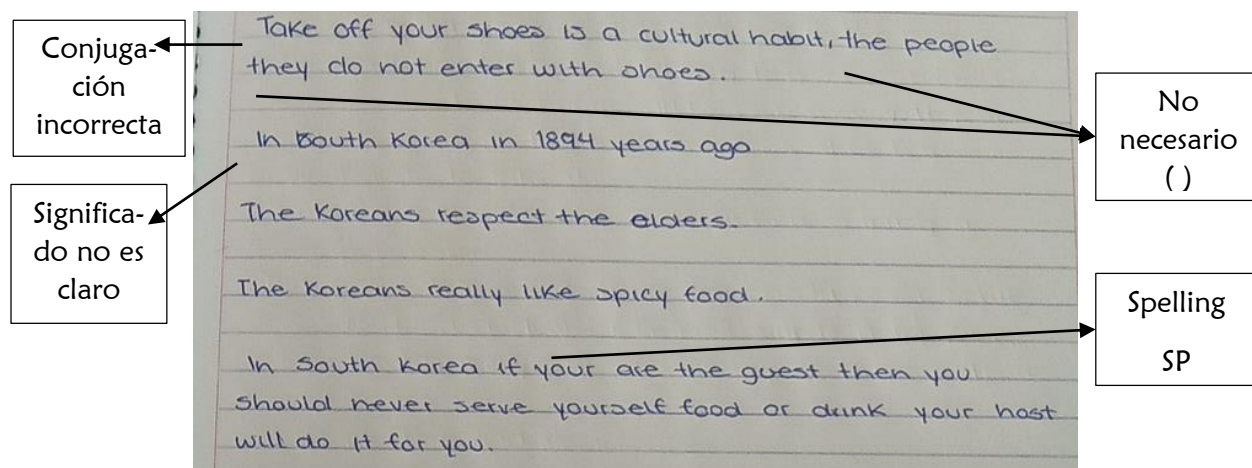 Conjuga-
ción
incorrecta
Significa-
do no es
claro
Take off your shoes is a cultural habit, the people
they do not enter with shoes.
In South Korea in 1894 years ago
The Koreans respect the elders.
The Koreans really like spicy food.
In South Korea if your are the guest then you
should never serve yourself food or drink your host
will do it for you.
No
necesario
( )
Spelling
SP